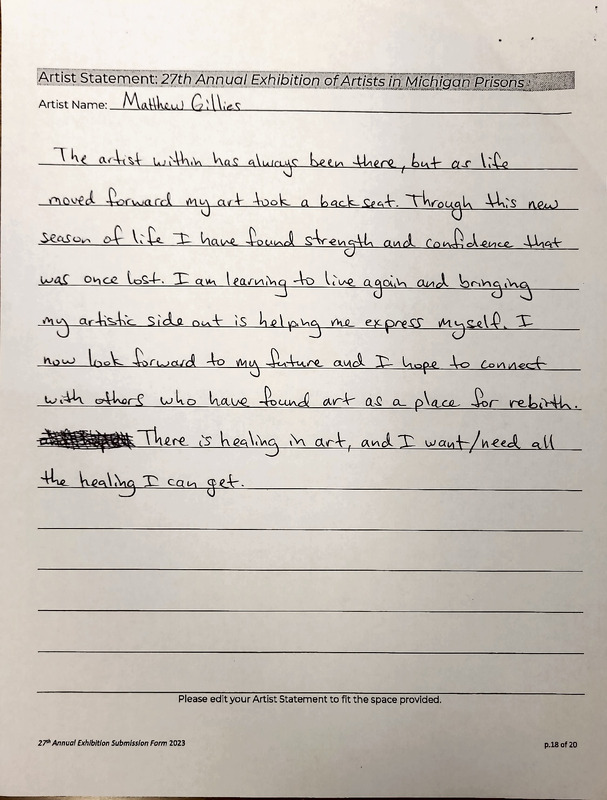 Artist Statement: 27th Annual Exhibition of Artists in Michigan Prisons
Artist Name: Matthew Gillies
The artist within has always been there, but as life
moved forward my art took a back seat. Through this new
season of life I have found strength and confidence that
was once lost. I am learning to live again and bringing
my artistic side out is helpng me express myself. I
now look forward to my future and I hope to connect
with others who have found art as a place for rebirth.
There is healing in art, and I want/need all
the healing I can get.
Please edit your Artist Statement to fit the space provided.
27th Annual Exhibition Submission Form 2023 p.18 of 20